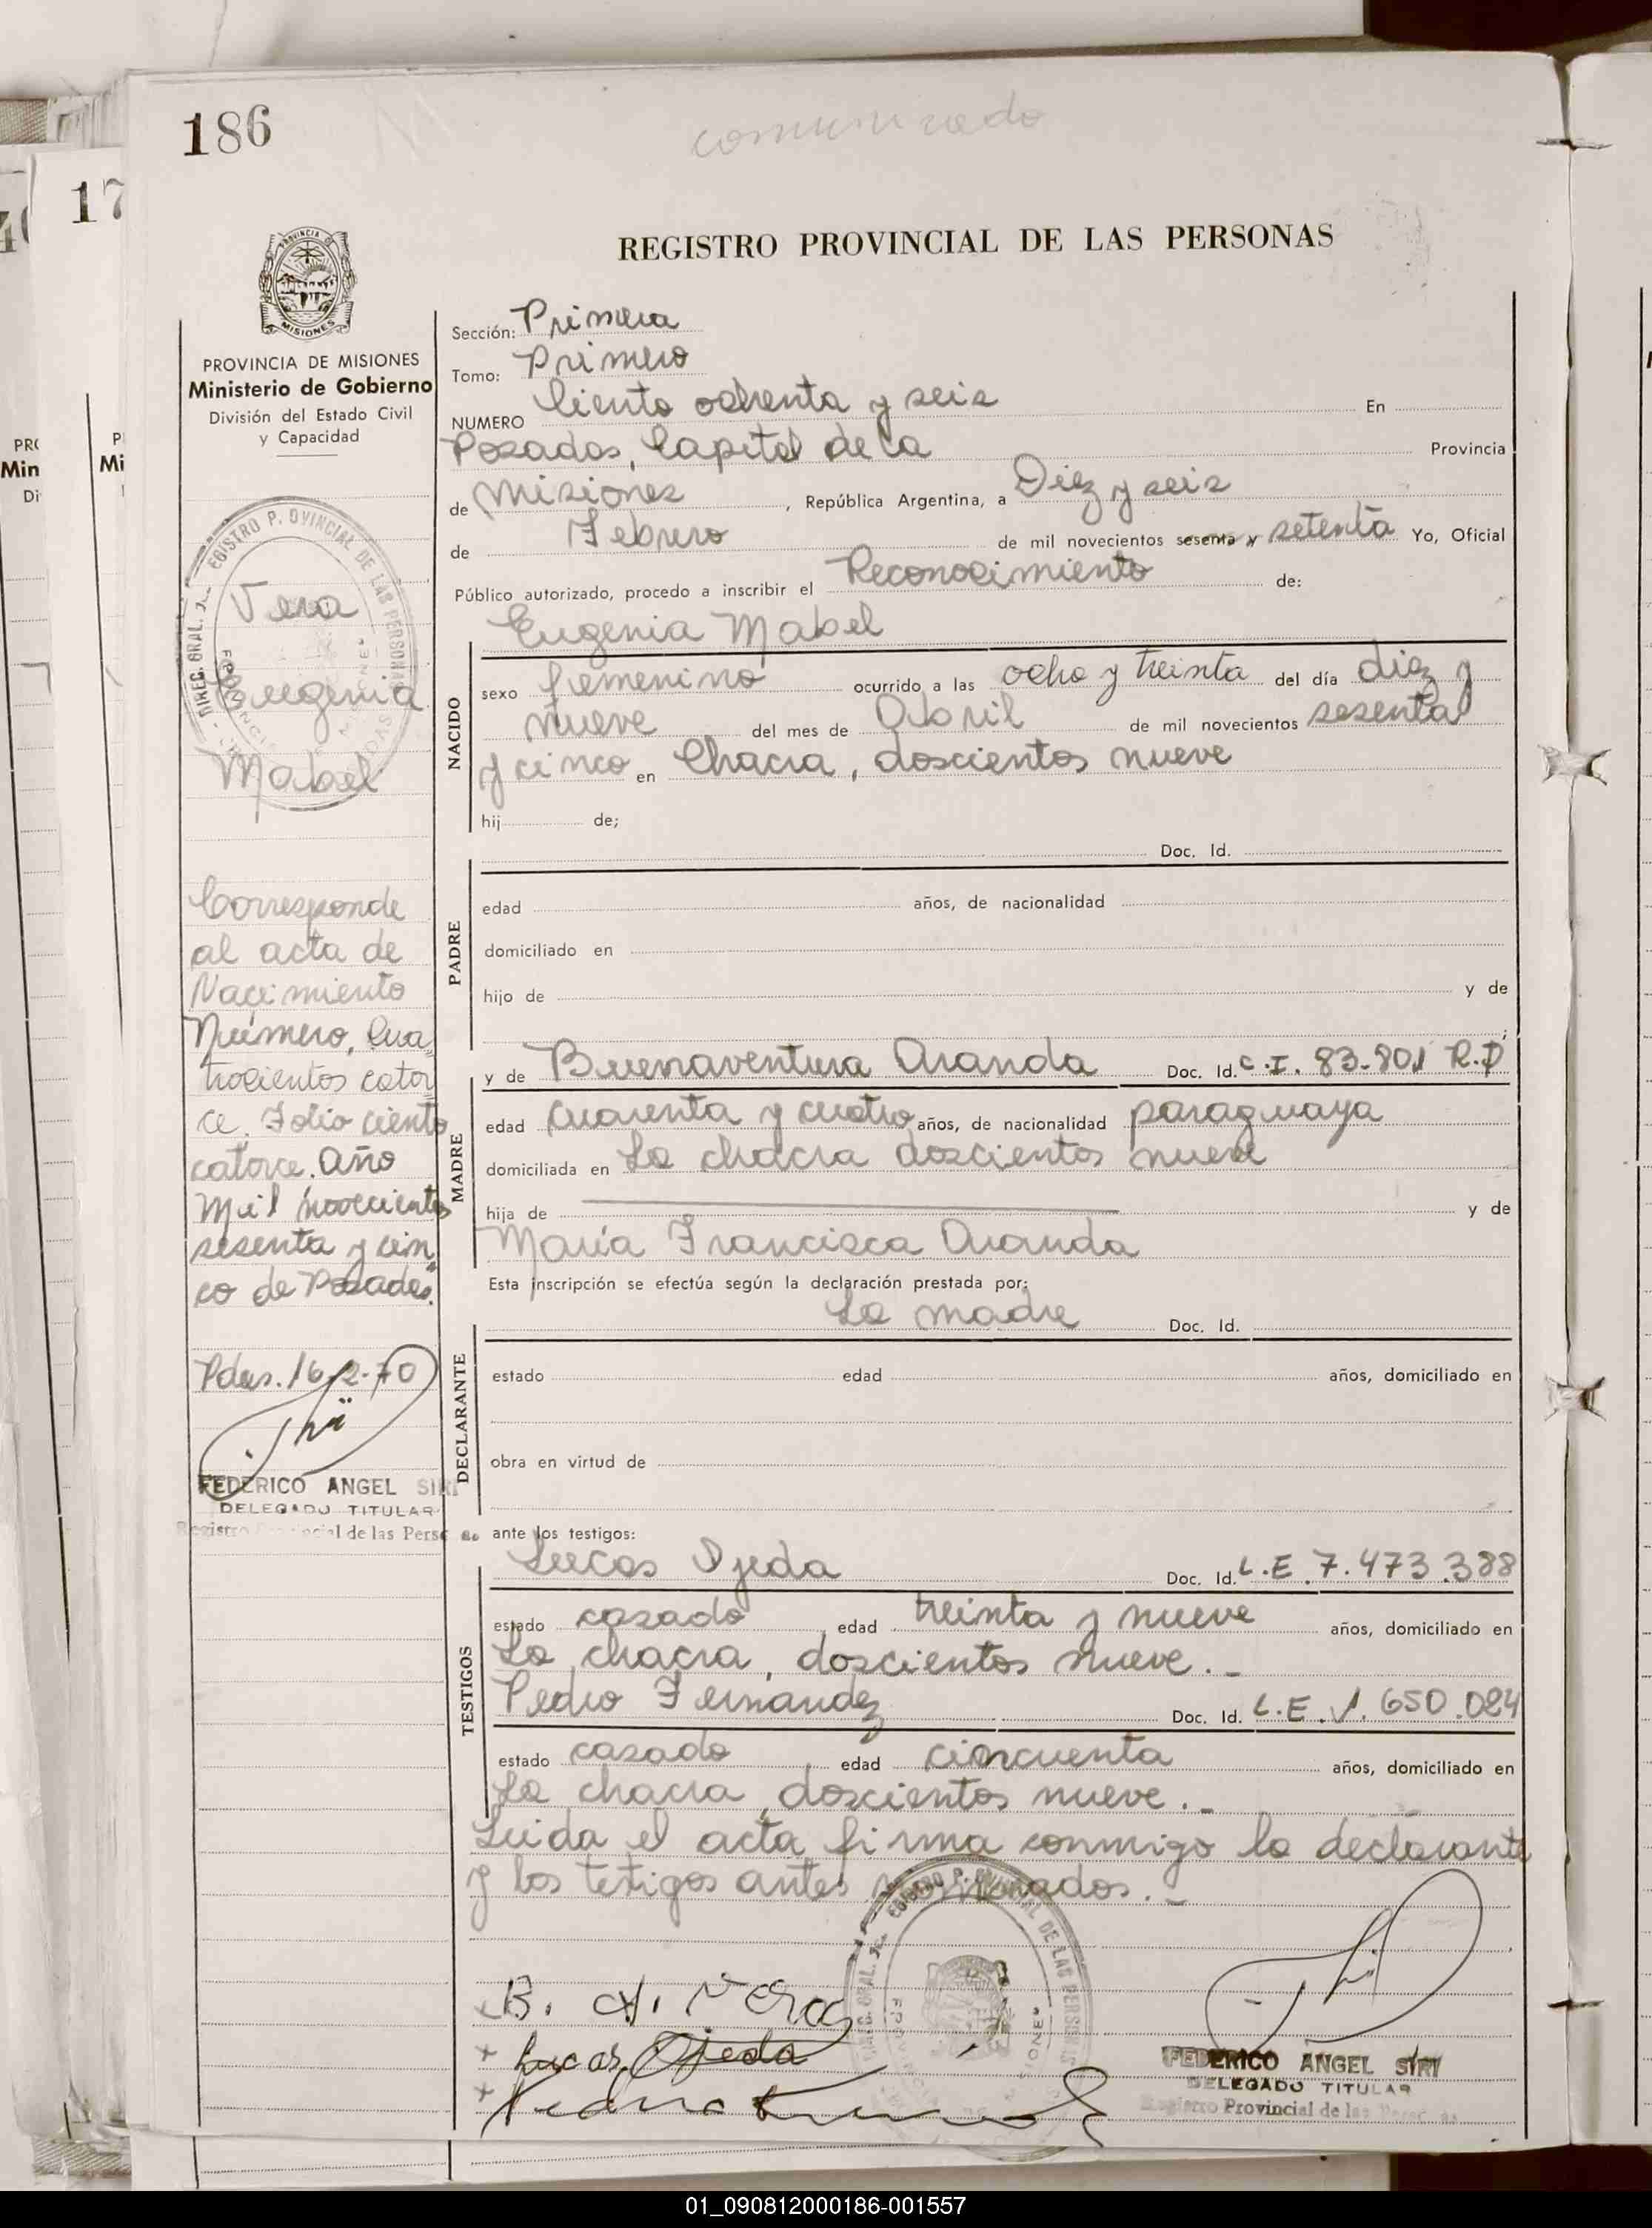 186
comunicado
17
REGISTRO PROVINCIAL DE LAS PERSONAS
PROVINCIA DE MISIONES
Ministerio de Gobierno
División del Estado Civil
y Capacidad
Vera
Eugenia
Mabel
Corresponde
al acta de
Nacimiento
Número, Cua
trocientos cator
ce. Folio ciento
catorce. Año
Mil novecientos
sesenta y cin
co de Posadas.
Pdas. 16-2-70
FEDERICO ANGEL SIRI
DELEGADO TITULAR
Registro Provincial de las Personas
Sección: Primera
Tomo: Primero
NUMERO Ciento ochenta y seis En
Posadas, Capital de la Provincia
de Misiones, República Argentina, a Diez y seis
de Febrero de mil novecientos sesenta y setenta Yo, Oficial
Público autorizado, procedo a inscribir el Reconocimiento de:
Eugenia Mabel
NACIDO
sexo femenino ocurrido a las ocho y treinta del día diez y
nueve del mes de Abril de mil novecientos sesenta
y cinco en Chacra, doscientos nueve
hij de;
Doc. Id.
PADRE
edad años, de nacionalidad
domiciliado en
hijo de y de
;
y de Buenaventura Aranda Doc. Id. C.I. 83.801 R.P
MADRE
edad cuarenta y cuatro años, de nacionalidad paraguaya
domiciliada en La chacra doscientos nueve
hija de y de
María Francisca Aranda
Esta inscripción se efectúa según la declaración prestada por:
La madre Doc. Id.
DECLARANTE
estado edad años, domiciliado en
obra en virtud de
ante los testigos:
Lucas Ojeda Doc. Id. L.E. 7.473.388
TESTIGOS
estado casado edad treinta y nueve años, domiciliado en
La chacra, doscientos nueve.-
Pedro Fernandez Doc. Id. L.E. 1.650.024
estado casado edad cincuenta años, domiciliado en
La chacra, doscientos nueve.-
Leida el acta firma conmigo la declarante
y los testigos antes nombrados.-
B. A. Vera
Lucas Ojeda
FEDERICO ANGEL SIRI
DELEGADO TITULAR
Registro Provincial de las Personas
01_090812000186-001557